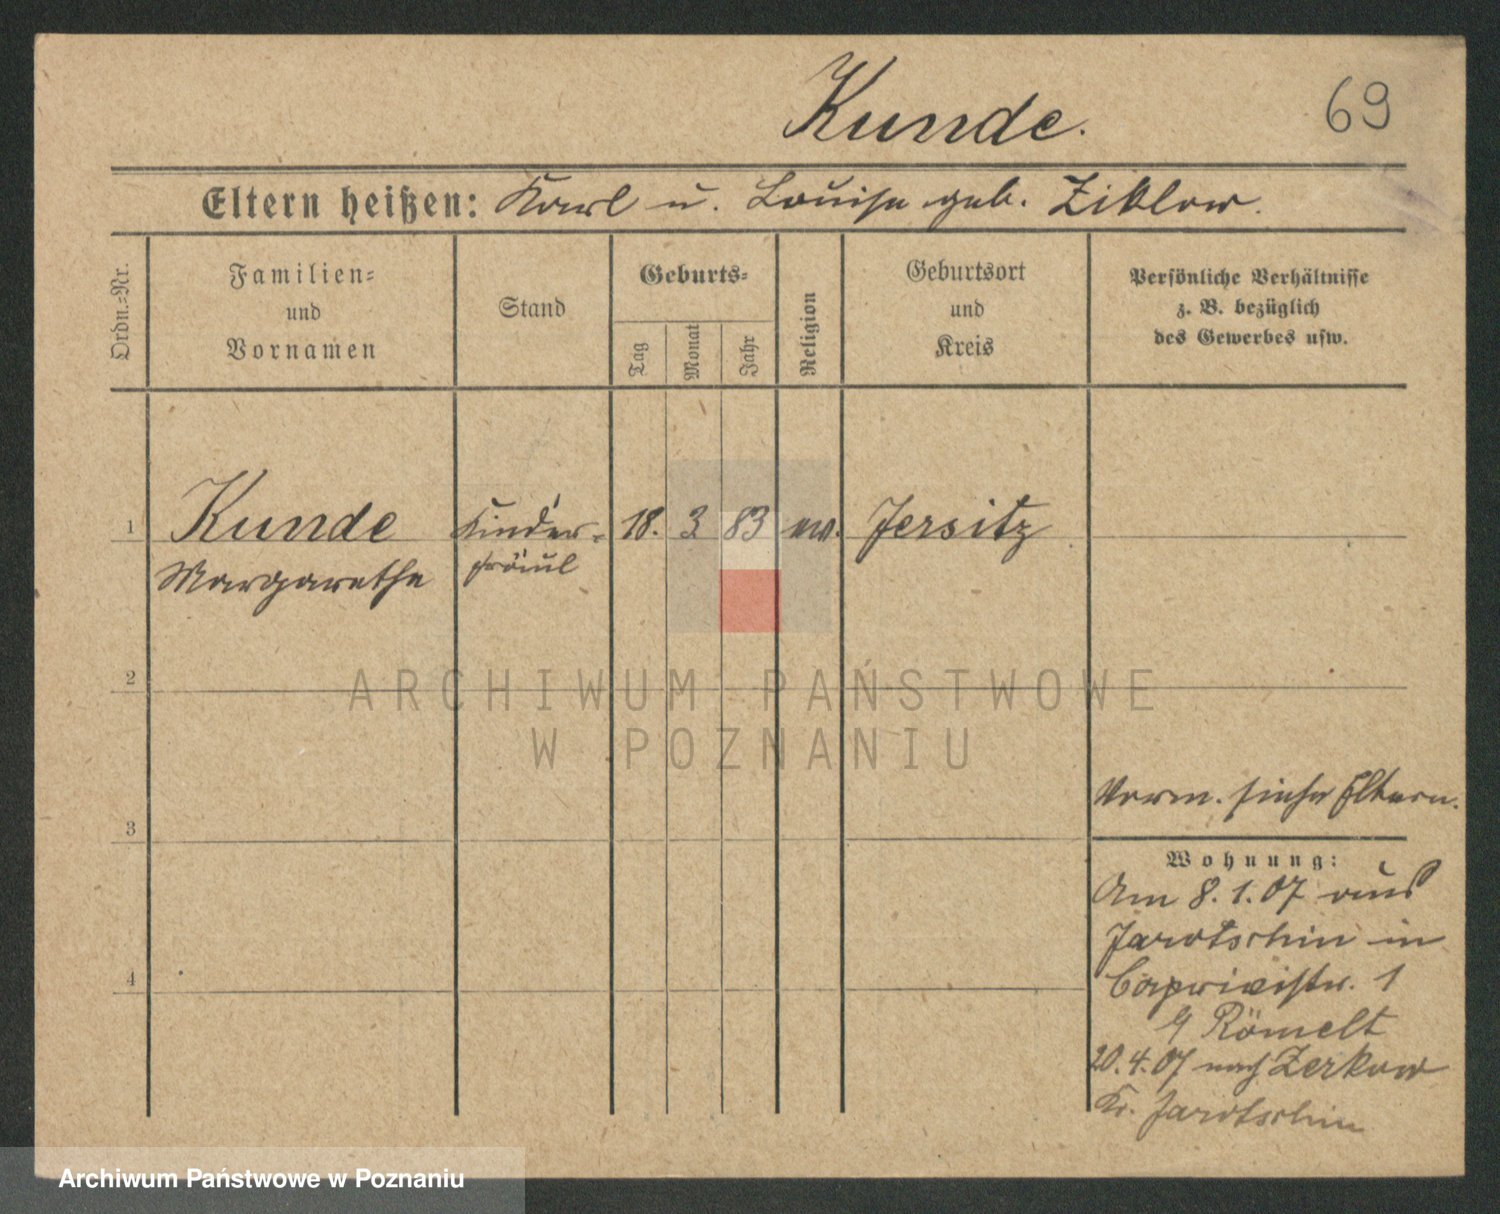 Kunde.
69
Eltern heißen: Karl u. Louise geb. Ziklow.
Ordn.-Nr.
Familien-
und
Vornamen
Stand
Geburts-
Tag
Monat
Jahr
Religion
Geburtsort
und
Kreis
Persönliche Verhältnisse
z. B. bezüglich
des Gewerbes usw.
1 Kunde Kinder- 18. 3 83 ev. Jersitz
Margarethe fräul
2
ARCHIWUM PAŃSTWOWE
W POZNANIU
Vorm. siehe Eltern.
3
Wohnung:
Am 8.1.07 aus
Jarotschin in
Caprivistr. 1
Römelt
4
20.4.07 nach Zerkow
Kr. Jarotschin
Archiwum Państwowe w Poznaniu